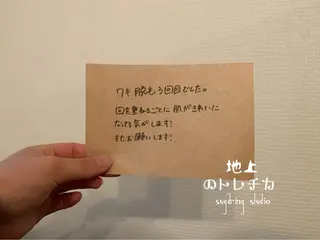 ワキ脱もう回目でした。
回を重ねるごとに肌がきれいに
なってる気がします！
またお願いします！
地上
のトレチカ
sugaring studio